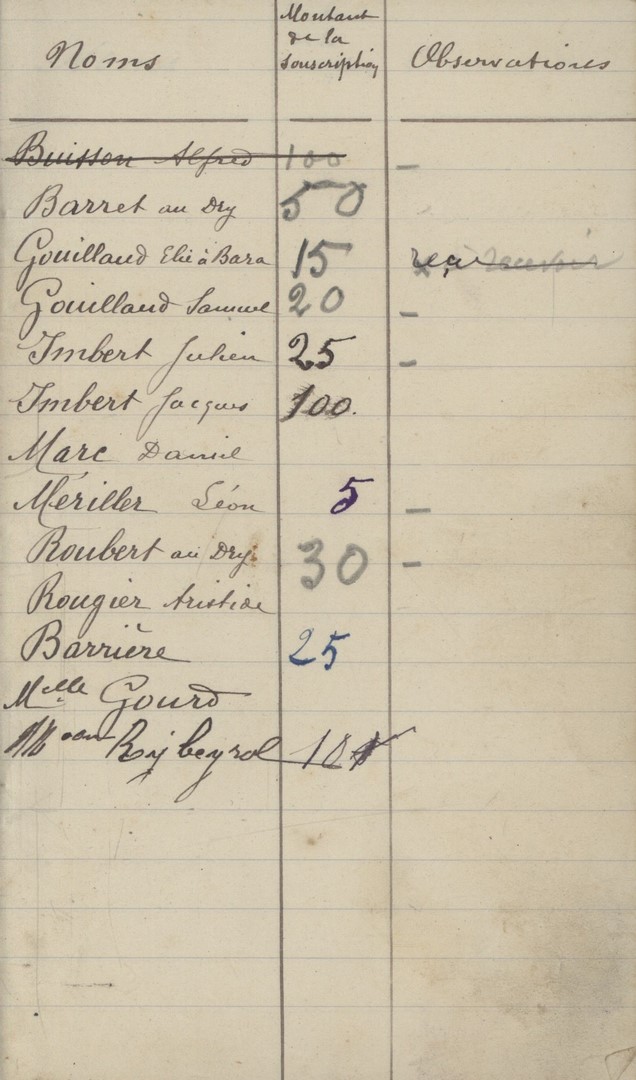 Noms Montant de la souscription Observations
Buisson Alfred 100 -
Barret au Dry 50
Gouilland Elie à Bara 15 reçu
Gouilland Samuel 20 -
Imbert Julien 25 -
Imbert Jacques 100.
Marc Daniel
Mériller Léon 5 -
Roubert au Dry 30 -
Rougier Aristide
Barrière 25
Melle Gourd
Ribeyrol 10